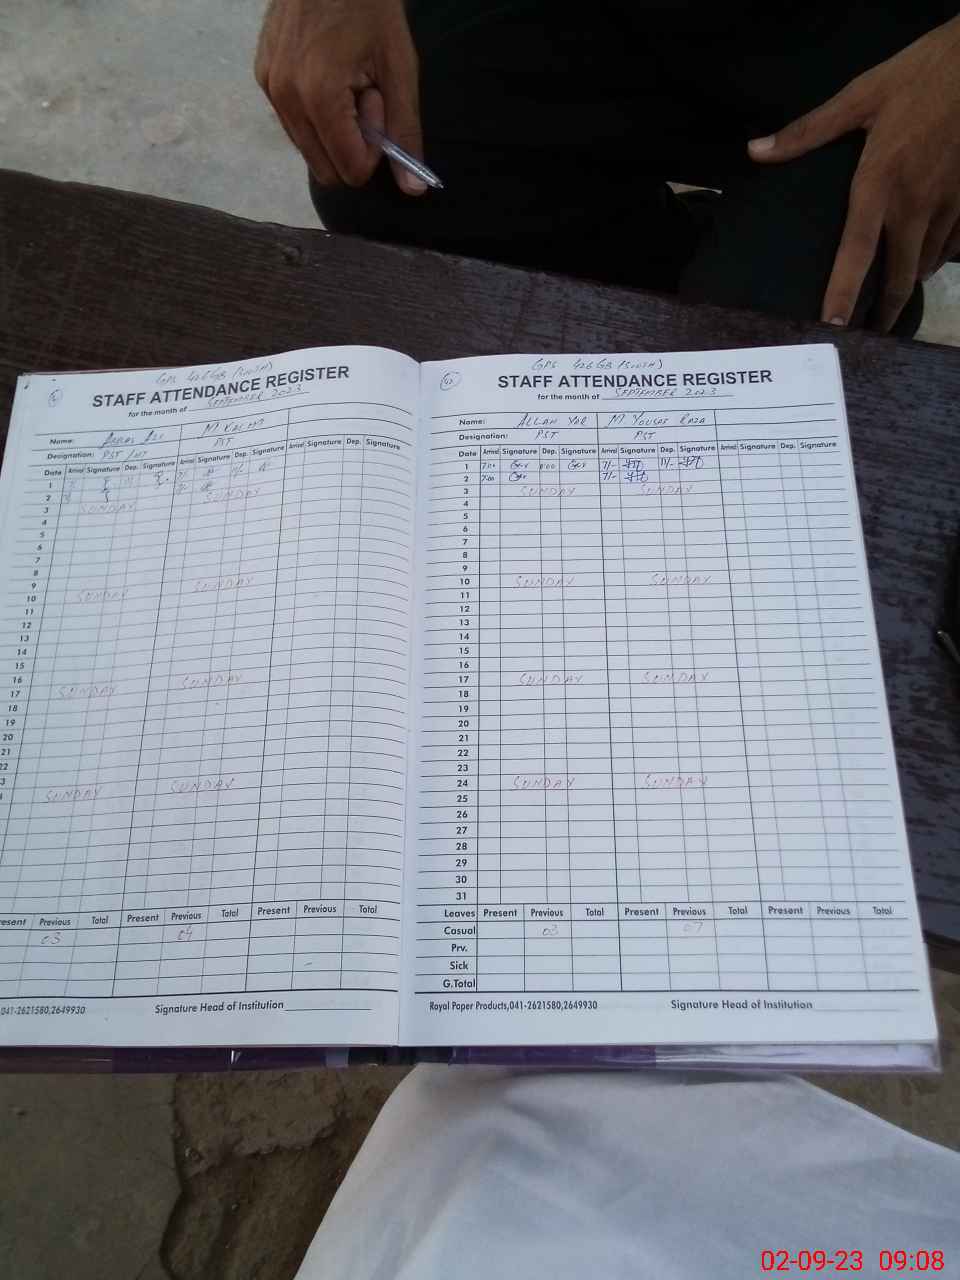 STAFF ATTENDANCE REGISTER
for the month of SEPTEMBER 2023
Name:
Designation: PST / HT PST
Date Arrival Signature Dep. Signature Arrival Signature Dep. Signature Arrival Signature Dep. Signature
1
2
3 SUNDAY SUNDAY
4
5
6
7
8
9
10 SUNDAY SUNDAY
11
12
13
14
15
16
17 SUNDAY SUNDAY
18
19
20
21
22
3
4 SUNDAY SUNDAY
resent Previous Total Present Previous Total Present Previous Total
03 04
041-2621580,2649930 Signature Head of Institution
GPS 426 GB
STAFF ATTENDANCE REGISTER
for the month of SEPTEMBER 2023
Name: ALLAH YAR M YOUSAF RAZA
Designation: PST PST
Date Arrival Signature Dep. Signature Arrival Signature Dep. Signature Arrival Signature Dep. Signature
1 7:00 7/- 11/-
2 7:00 7/-
3 SUNDAY SUNDAY
4
5
6
7
8
9
10 SUNDAY SUNDAY
11
12
13
14
15
16
17 SUNDAY SUNDAY
18
19
20
21
22
23
24 SUNDAY SUNDAY
25
26
27
28
29
30
31
Leaves Present Previous Total Present Previous Total Present Previous Total
Casual 03 07
Prv.
Sick
G.Total
Royal Paper Products,041-2621580,2649930 Signature Head of Institution
02-09-23 09:08